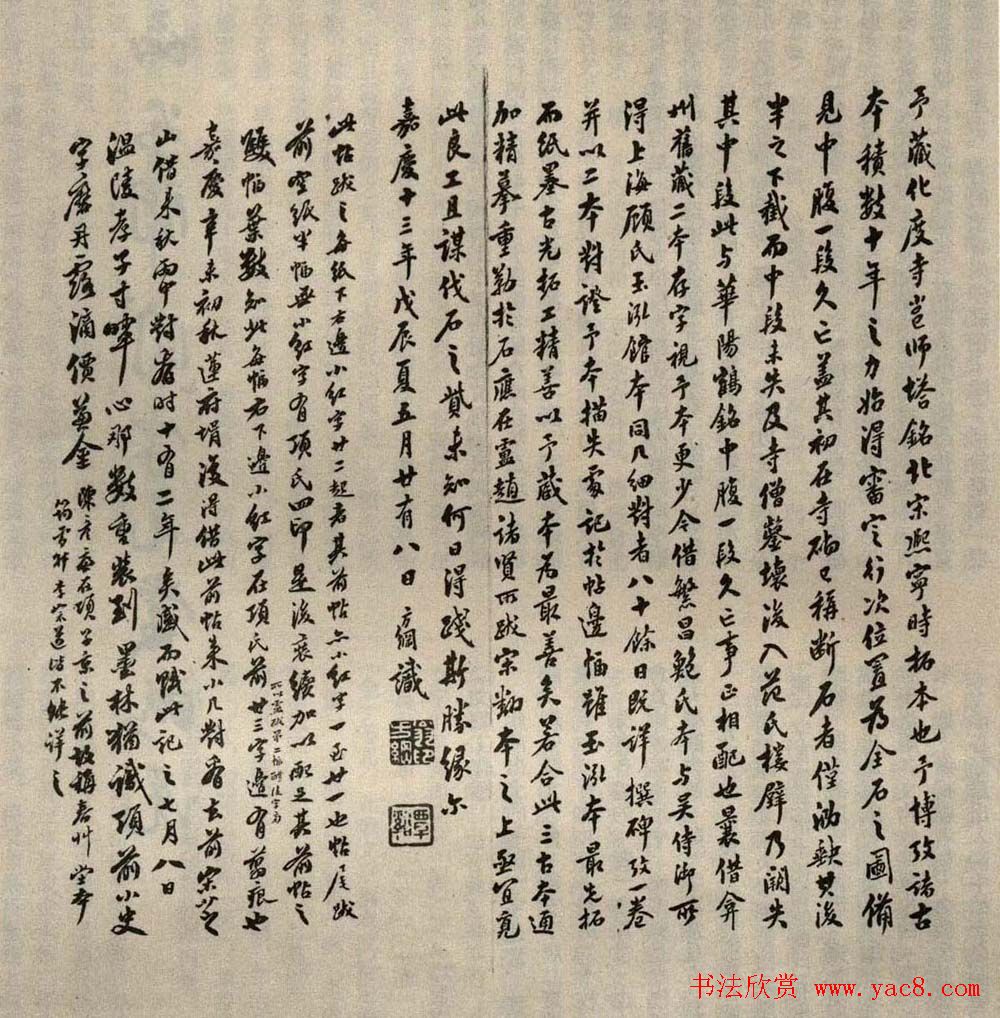 予藏化度寺邕師塔銘北宋熙寧時拓本也予博攷諸古
本積數十年之力始得審定行次位置為全石之圖備
見中腹一段久亡蓋其初在寺硐已稱斷石者僅泐缺其後
半之下截而中段未失及寺僧鑿壞後入范氏樓壁乃闕失
其中段此與華陽鶴銘中腹一段久亡事正相配也曩借弇
州舊藏二本存字視予本更少今借繁昌鮑氏本与吴侍御所
得上海顧氏玉泓館本同几細對者八十餘日既詳撰碑攷一卷
并以二本對證予本描失處記於帖邊幅雖玉泓本最先拓
而紙墨古光拓工精善以予藏本為最善矣若合此三古本通
加精摹重勒於石應在靈趙諸賢所跋宋翻本之上亟宜覓
此良工且謀伐石之貲未知何日得踐斯勝緣尔
嘉慶十三年戊辰夏五月廿有八日 方綱識
翁印方綱
覃谿
此帖跋之每紙下右邊小紅字廿二起者其前帖亦小紅字一至廿一也帖尾跋
前空紙半幅無小紅字有項氏四印是後裝續加以配足其前帖之
雙幅葉數知此每幅右下邊小紅字在項氏前廿三字邊有翦痕也
嘉慶辛未初秋蓮府壻復得借此前帖来小几對看去前宋芝
山借来秋雨對看时十有二年矣感而賦此記之七月八日
溫陵孝子寸 心那數重裝到墨林猶識項前小史
字磨丹露滴價兼金
陳彦廉在項子京之前故稱春艸堂本